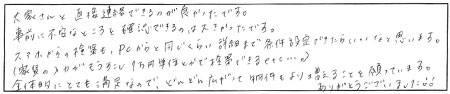 大家さんと直接連絡できるのが良かったです。
事前に不安なところを確認できるのは大きかったです。
スマホからの検索も、PCからと同じくらい詳細まで条件設定できたらいいなと思います。
(家賃の入力がもう少し1万円単位とかで検索できるetc…)
全体的にとても満足なので、どんどん広がって物件もより増えることを願っています。
ありがとうございました!!